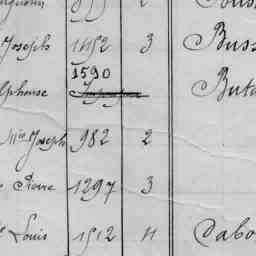 Joseph 1452 3 Buss
1590
lphonse But
Mie Joseph 982 2
Pierre 1297 3
Louis 1512 4 Cabo